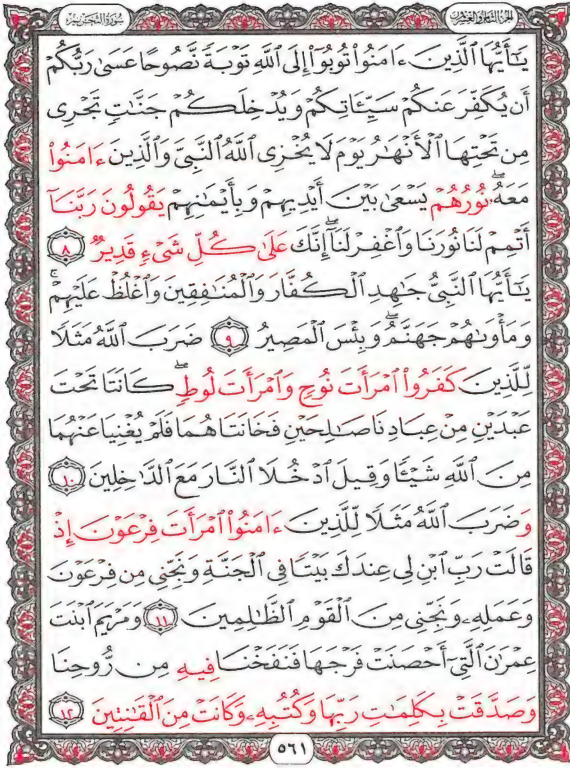 الجزء الثامن والعشرون سورة التحريم
يَـٰٓأَيُّهَا ٱلَّذِينَ ءَامَنُوا۟ تُوبُوٓا۟ إِلَى ٱللَّهِ تَوْبَةً نَّصُوحًا عَسَىٰ رَبُّكُمْ
أَن يُكَفِّرَ عَنكُمْ سَيِّـَٔاتِكُمْ وَيُدْخِلَكُمْ جَنَّـٰتٍ تَجْرِى
مِن تَحْتِهَا ٱلْأَنْهَـٰرُ يَوْمَ لَا يُخْزِى ٱللَّهُ ٱلنَّبِىَّ وَٱلَّذِينَ ءَامَنُوا۟
مَعَهُۥ ۖ نُورُهُمْ يَسْعَىٰ بَيْنَ أَيْدِيهِمْ وَبِأَيْمَـٰنِهِمْ يَقُولُونَ رَبَّنَآ
أَتْمِمْ لَنَا نُورَنَا وَٱغْفِرْ لَنَآ ۖ إِنَّكَ عَلَىٰ كُلِّ شَىْءٍ قَدِيرٌ ٨
يَـٰٓأَيُّهَا ٱلنَّبِىُّ جَـٰهِدِ ٱلْكُفَّارَ وَٱلْمُنَـٰفِقِينَ وَٱغْلُظْ عَلَيْهِمْ ۚ
وَمَأْوَىٰهُمْ جَهَنَّمُ ۖ وَبِئْسَ ٱلْمَصِيرُ ٩ ضَرَبَ ٱللَّهُ مَثَلًا
لِّلَّذِينَ كَفَرُوا۟ ٱمْرَأَتَ نُوحٍ وَٱمْرَأَتَ لُوطٍ ۖ كَانَتَا تَحْتَ
عَبْدَيْنِ مِنْ عِبَادِنَا صَـٰلِحَيْنِ فَخَانَتَاهُمَا فَلَمْ يُغْنِيَا عَنْهُمَا
مِنَ ٱللَّهِ شَيْـًٔا وَقِيلَ ٱدْخُلَا ٱلنَّارَ مَعَ ٱلدَّٰخِلِينَ ١٠
وَضَرَبَ ٱللَّهُ مَثَلًا لِّلَّذِينَ ءَامَنُوا۟ ٱمْرَأَتَ فِرْعَوْنَ إِذْ
قَالَتْ رَبِّ ٱبْنِ لِى عِندَكَ بَيْتًا فِى ٱلْجَنَّةِ وَنَجِّنِى مِن فِرْعَوْنَ
وَعَمَلِهِۦ وَنَجِّنِى مِنَ ٱلْقَوْمِ ٱلظَّـٰلِمِينَ ١١ وَمَرْيَمَ ٱبْنَتَ
عِمْرَٰنَ ٱلَّتِىٓ أَحْصَنَتْ فَرْجَهَا فَنَفَخْنَا فِيهِ مِن رُّوحِنَا
وَصَدَّقَتْ بِكَلِمَـٰتِ رَبِّهَا وَكُتُبِهِۦ وَكَانَتْ مِنَ ٱلْقَـٰنِتِينَ ١٢
٥٦١